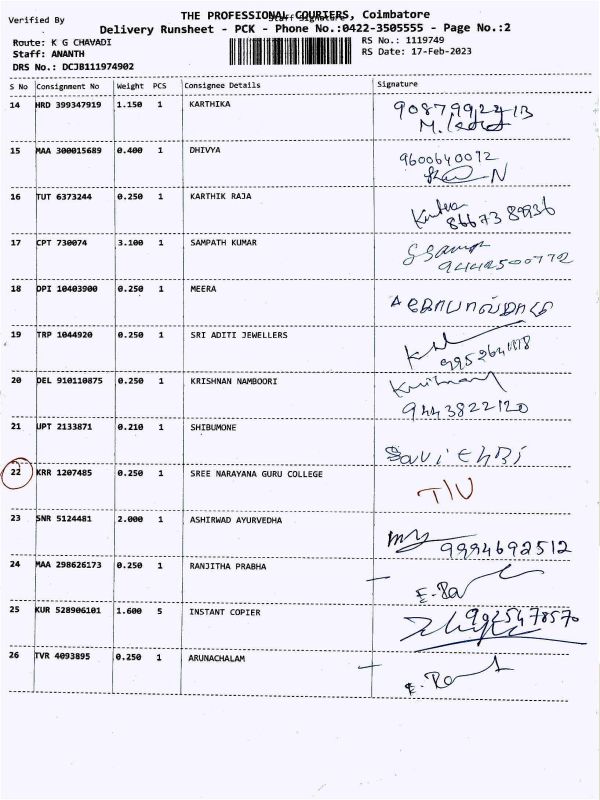 Verified By
THE PROFESSIONAL COURIERS, Coimbatore
Staff Signature
Delivery Runsheet - PCK - Phone No.:0422-3505555 - Page No.:2
Route: K G CHAVADI
RS No.: 1119749
Staff: ANANTH
RS Date: 17-Feb-2023
DRS No.: DCJB111974902
S No Consignment No Weight PCS Consignee Details Signature
14 HRD 399347919 1.150 1 KARTHIKA
15 MAA 300015689 0.400 1 DHIVYA 9600640072
16 TUT 6373244 0.250 1 KARTHIK RAJA 8667389936
17 CPT 730074 3.100 1 SAMPATH KUMAR 9442500772
18 DPI 10403900 0.250 1 MEERA
19 TRP 1044920 0.250 1 SRI ADITI JEWELLERS
20 DEL 910110875 0.250 1 KRISHNAN NAMBOORI 9443822120
21 UPT 2133871 0.210 1 SHIBUMONE Savithri
22 KRR 1207485 0.250 1 SREE NARAYANA GURU COLLEGE T/U
23 SNR 5124481 2.000 1 ASHIRWAD AYURVEDHA 9994692512
24 MAA 298626173 0.250 1 RANJITHA PRABHA
25 KUR 528906101 1.600 5 INSTANT COPIER
26 TVR 4093895 0.250 1 ARUNACHALAM